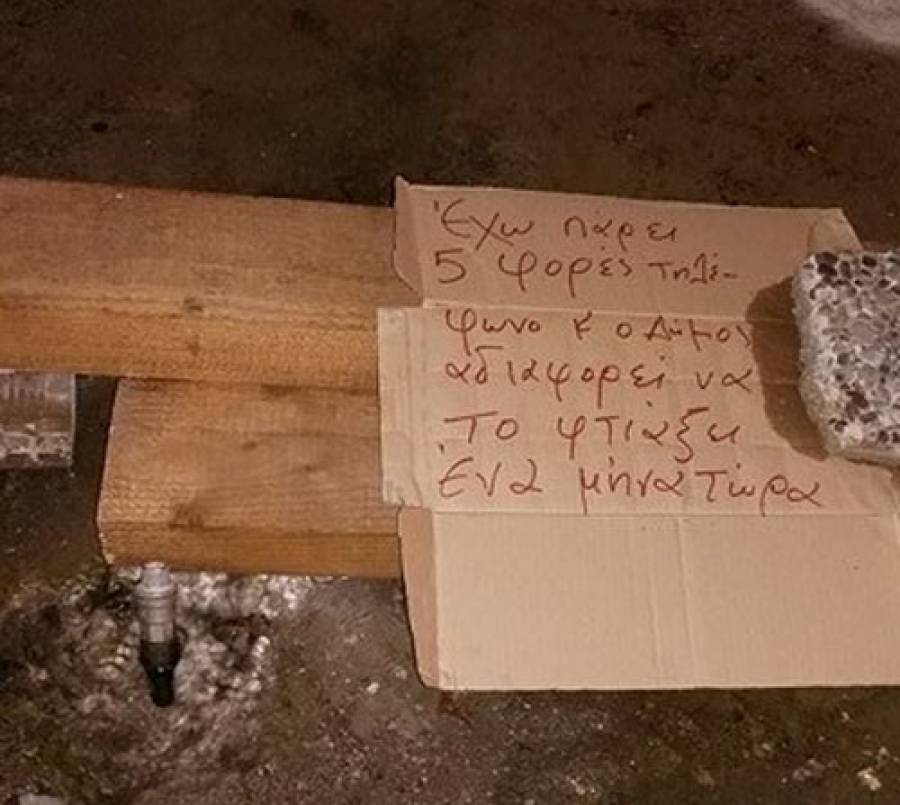 Έχω πάρει
5 φορές τηλέ-
φωνο κ ο Δήμος
αδιαφορεί να
το φτιάξει
ένα μήνα τώρα